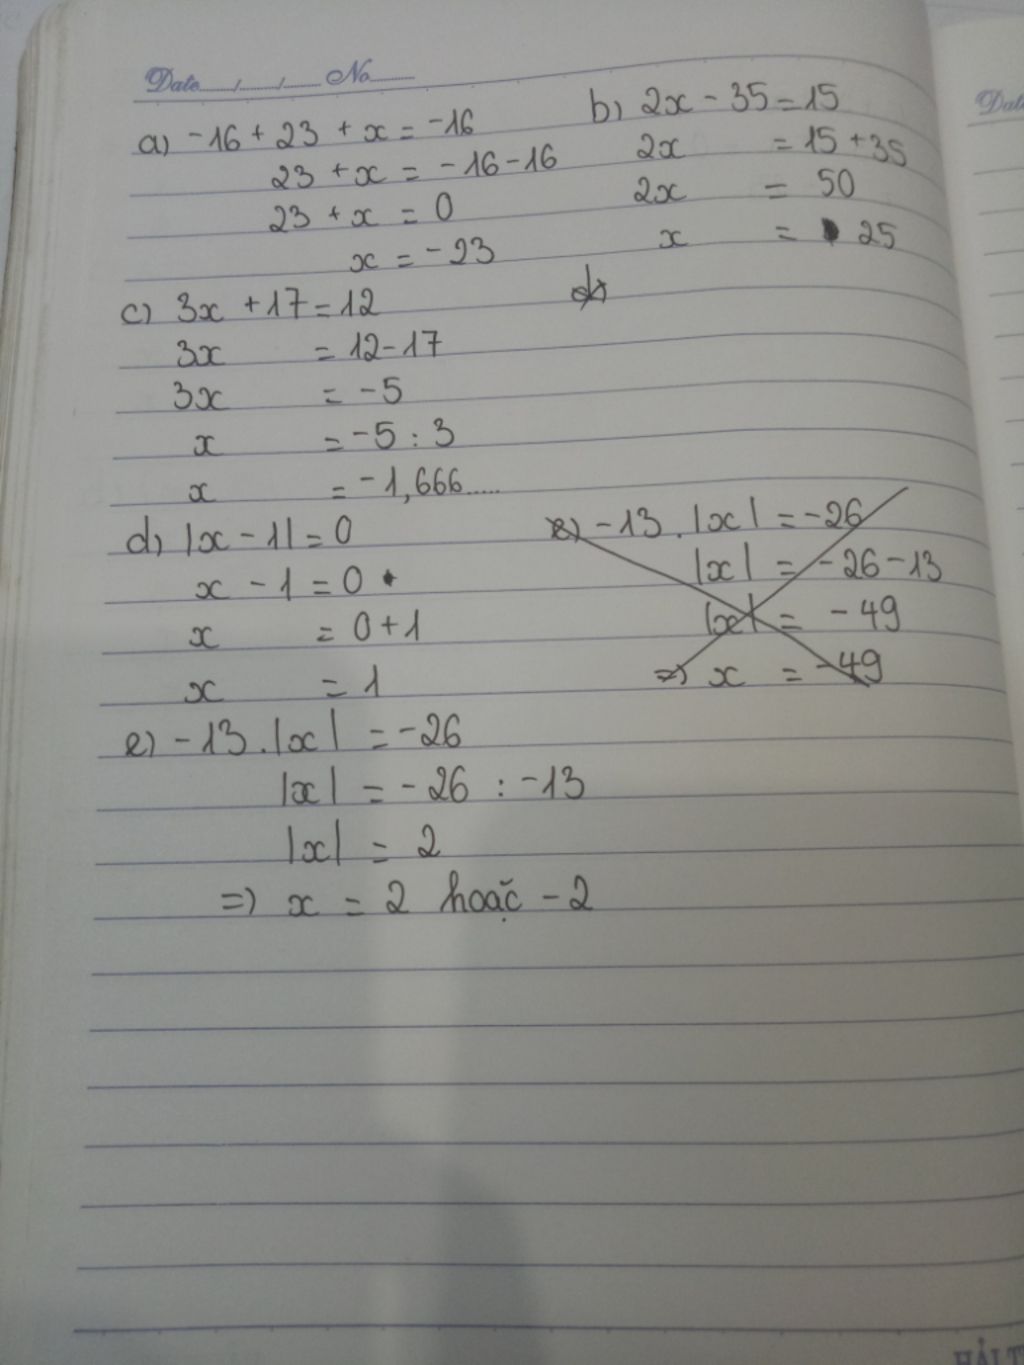 Date...../...../..... No.......
a) -16 + 23 + x = -16
23 + x = -16 - 16
23 + x = 0
x = -23
b) 2x - 35 = 15
2x = 15 + 35
2x = 50
x = 25
c) 3x + 17 = 12
3x = 12 - 17
3x = -5
x = -5 : 3
x = -1,666.....
d) |x - 1| = 0
x - 1 = 0
x = 0 + 1
x = 1
e) -13 . |x| = -26
|x| = -26 - 13
|x| = -49
=) x = -49
e) -13 . |x| = -26
|x| = -26 : -13
|x| = 2
=) x = 2 hoặc -2
Date